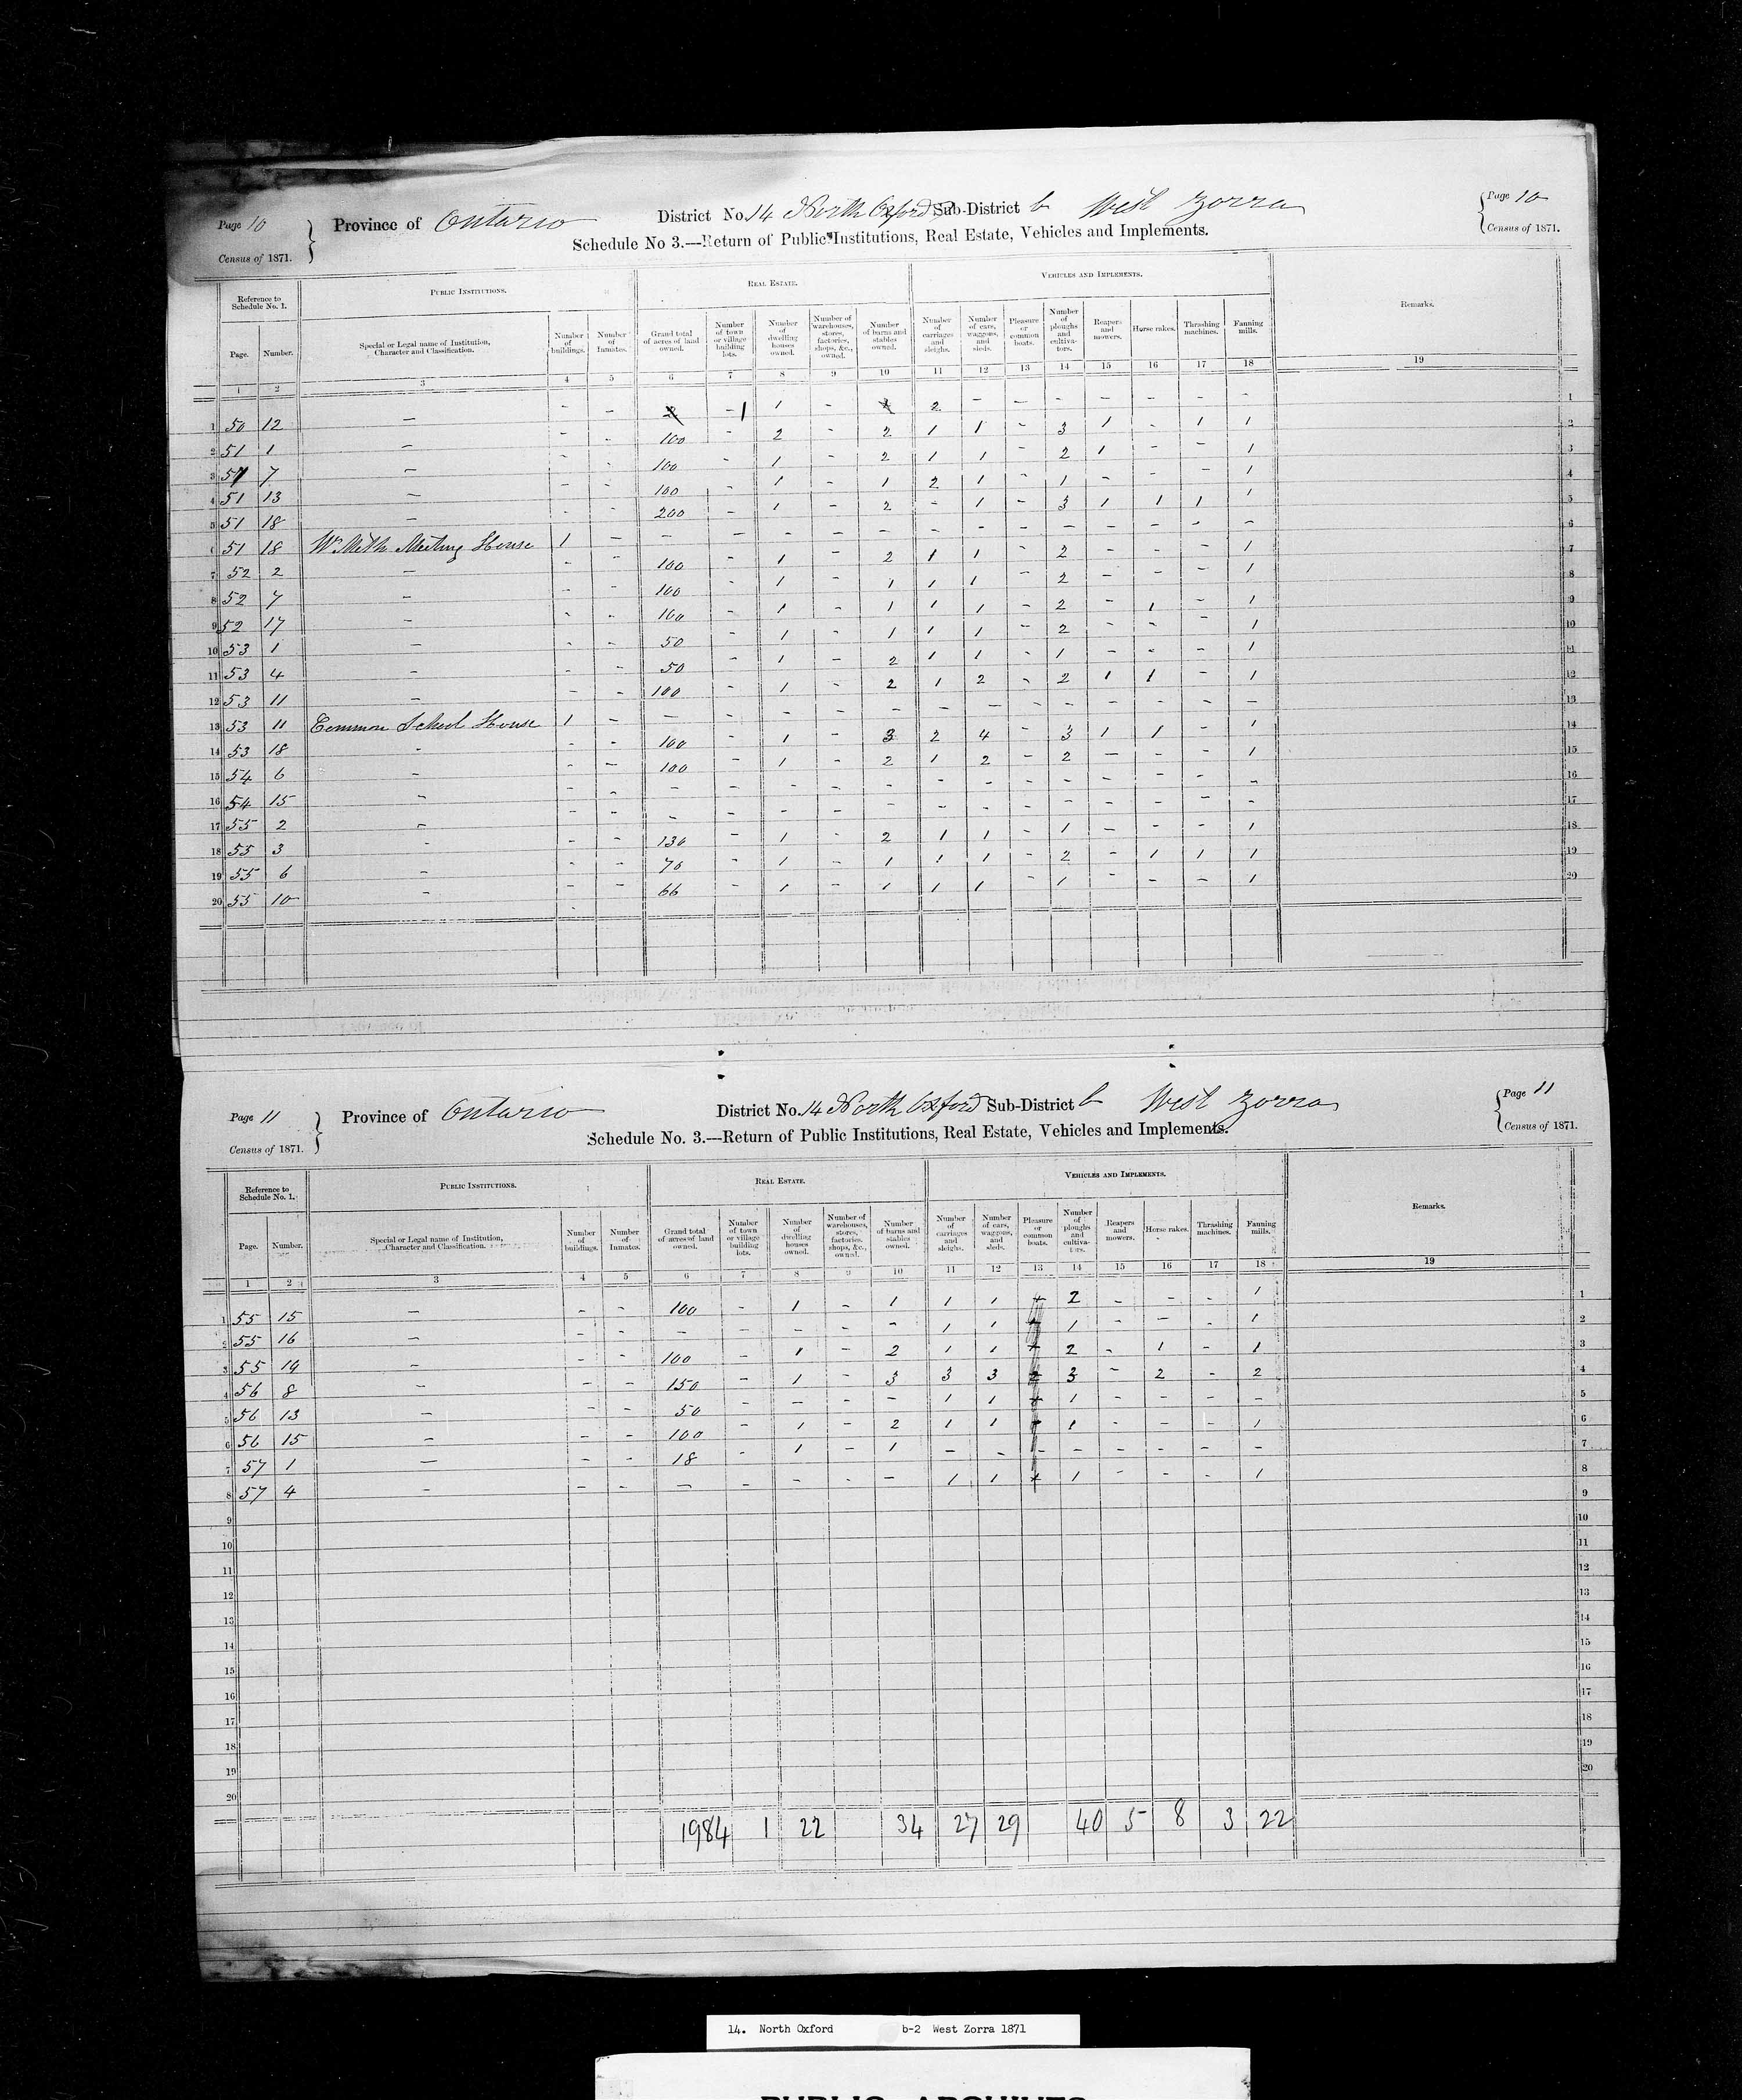 Page 10
Census of 1871.
Province of Ontario District No. 14 North Oxford Sub-District b West Zorra
Page 10
Census of 1871.
Schedule No 3.—Return of Public Institutions, Real Estate, Vehicles and Implements.
Reference to Schedule No. 1. PUBLIC INSTITUTIONS. REAL ESTATE. VEHICLES AND IMPLEMENTS. Remarks.
Page. Number. Special or Legal name of Institution, Character and Classification. Number of buildings. Number of Inmates. Grand total of acres of land owned. Number of town or village building lots. Number of dwelling houses owned. Number of warehouses, stores, factories, shops, &c., owned. Number of barns and stables owned. Number of carriages and sleighs. Number of cars, waggons, and sleds. Pleasure or common boats. Number of ploughs and cultivators. Reapers and mowers. Horse rakes. Thrashing machines. Fanning mills.
1 2 3 4 5 6 7 8 9 10 11 12 13 14 15 16 17 18 19
1 50 12 — - - - 1 1 - 2 - - - - - - - 1
2 51 1 — - - 100 - 2 - 2 1 1 - 3 1 - 1 1 2
3 51 7 — - - 100 - 1 - 2 1 1 - 2 1 - - 1 3
4 51 13 — - - 100 - 1 - 1 2 1 - 1 - - - 1 4
5 51 18 — - - 200 - 1 - 2 - 1 - 3 1 1 1 1 5
51 18 W. Meth Meeting House 1 - - - - - - - - - - - - - - 6
7 52 2 — - - 100 - 1 - 2 1 1 - 2 - - - 1 7
8 52 7 — - - 100 - 1 - 1 1 1 - 2 - - - 1 8
9 52 17 — - - 100 - 1 - 1 1 1 - 2 - 1 - 1 9
10 53 1 — - - 50 - 1 - 1 1 1 - 2 - - - 1 10
11 53 4 — - - 50 - 1 - 2 1 1 - 1 - - - 1 11
12 53 11 — - - 100 - 1 - 2 1 2 - 2 1 1 - 1 12
13 53 11 Common School House 1 - - - - - - - - - - - - - - 13
14 53 18 - - - 100 - 1 - 3 2 4 - 3 1 1 - 1 14
15 54 6 - - - 100 - 1 - 2 1 2 - 2 - - - 1 15
16 54 15 - - - - - - - - - - - - - - - - 16
17 55 2 - - - - - - - - - - - - - - - - 17
18 55 3 - - - 130 - 1 - 2 1 1 - 1 - - - 1 18
19 55 6 - - - 70 - 1 - 1 1 1 - 2 - 1 1 1 19
20 55 10 - - - 66 - 1 - 1 1 1 - 1 - - - 1 20
Page 11
Census of 1871.
Province of Ontario District No. 14 North Oxford Sub-District b West Zorra
Page 11
Census of 1871.
Schedule No. 3.—Return of Public Institutions, Real Estate, Vehicles and Implements.
Reference to Schedule No. 1. PUBLIC INSTITUTIONS. REAL ESTATE. VEHICLES AND IMPLEMENTS. Remarks.
Page. Number. Special or Legal name of Institution, Character and Classification. Number of buildings. Number of Inmates. Grand total of acres of land owned. Number of town or village building lots. Number of dwelling houses owned. Number of warehouses, stores, factories, shops, &c., owned. Number of barns and stables owned. Number of carriages and sleighs. Number of cars, waggons, and sleds. Pleasure or common boats. Number of ploughs and cultivators. Reapers and mowers. Horse rakes. Thrashing machines. Fanning mills.
1 2 3 4 5 6 7 8 9 10 11 12 13 14 15 16 17 18 19
1 55 15 — - - 100 - 1 - 1 1 1 2 - - - 1 1
2 55 16 — - - - - - - - 1 1 1 - - - 1 2
3 55 19 — - - 100 - 1 - 2 1 1 2 - 1 - 1 3
4 56 8 - - - 150 - 1 - 3 3 3 3 - 2 - 2 4
5 56 13 — - - 50 - - - - 1 1 1 - - - - 5
6 56 15 — - - 100 - 1 - 2 1 1 1 - - - 1 6
7 57 1 — - - 18 - 1 - 1 - - - - - - - - 7
8 57 4 - - - - - - - - 1 1 1 - - - 1 8
9 9
10 10
11 11
12 12
13 13
14 14
15 15
16 16
17 17
18 18
19 19
20 20
1984 1 22 34 27 29 40 5 8 3 22
14. North Oxford b-2 West Zorra 1871
PUBLIC ARCHIVES